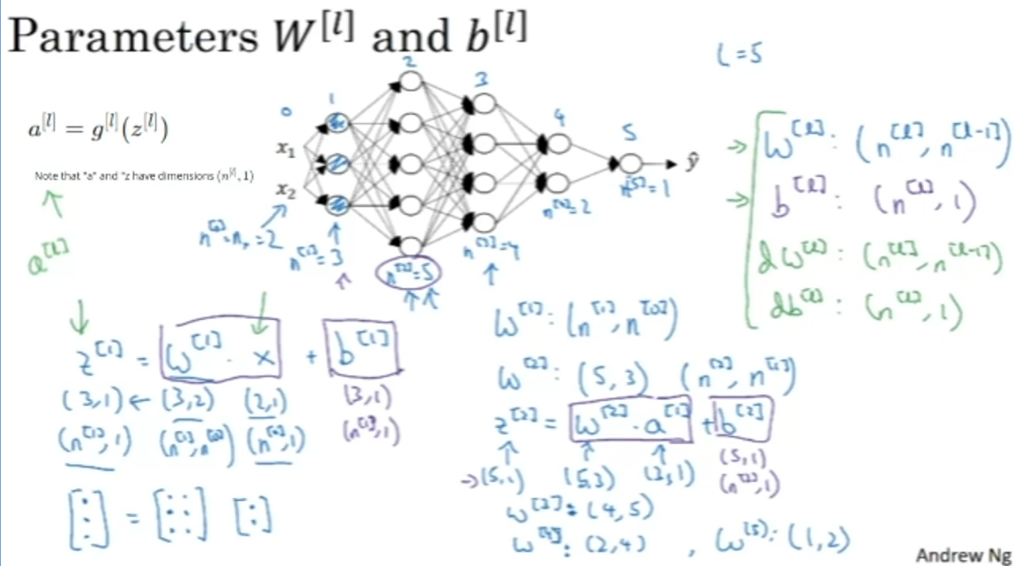 Parameters W^[l] and b^[l]
L = 5
a^[l] = g^[l](z^[l])
Note that "a" and "z have dimensions (n^[l], 1)
a^[l]
0 1 2 3 4 5
x₁
x₂
ŷ
n^[1] = 3
n^[2] = 5
n^[3] = 4
n^[4] = 2
n^[5] = 1
→ W^[l] : (n^[l], n^[l-1])
→ b^[l] : (n^[l], 1)
dW^[l] : (n^[l], n^[l-1])
db^[l] : (n^[l], 1)
z^[1] = W^[1] · x + b^[1]
(3,1) ← (3,2) (2,1) (3,1)
(n^[1], 1) (n^[1], n^[0]) (n^[0], 1) (n^[1], 1)
[:] = [::] [:]
W^[1] : (n^[1], n^[0])
W^[2] : (5,3) (n^[2], n^[1])
z^[2] = W^[2] · a^[1] + b^[2]
→ (5,1) (5,3) (3,1) (5,1)
(n^[2], 1)
W^[3] : (4,5)
W^[4] : (2,4) , W^[5] : (1,2)
Andrew Ng